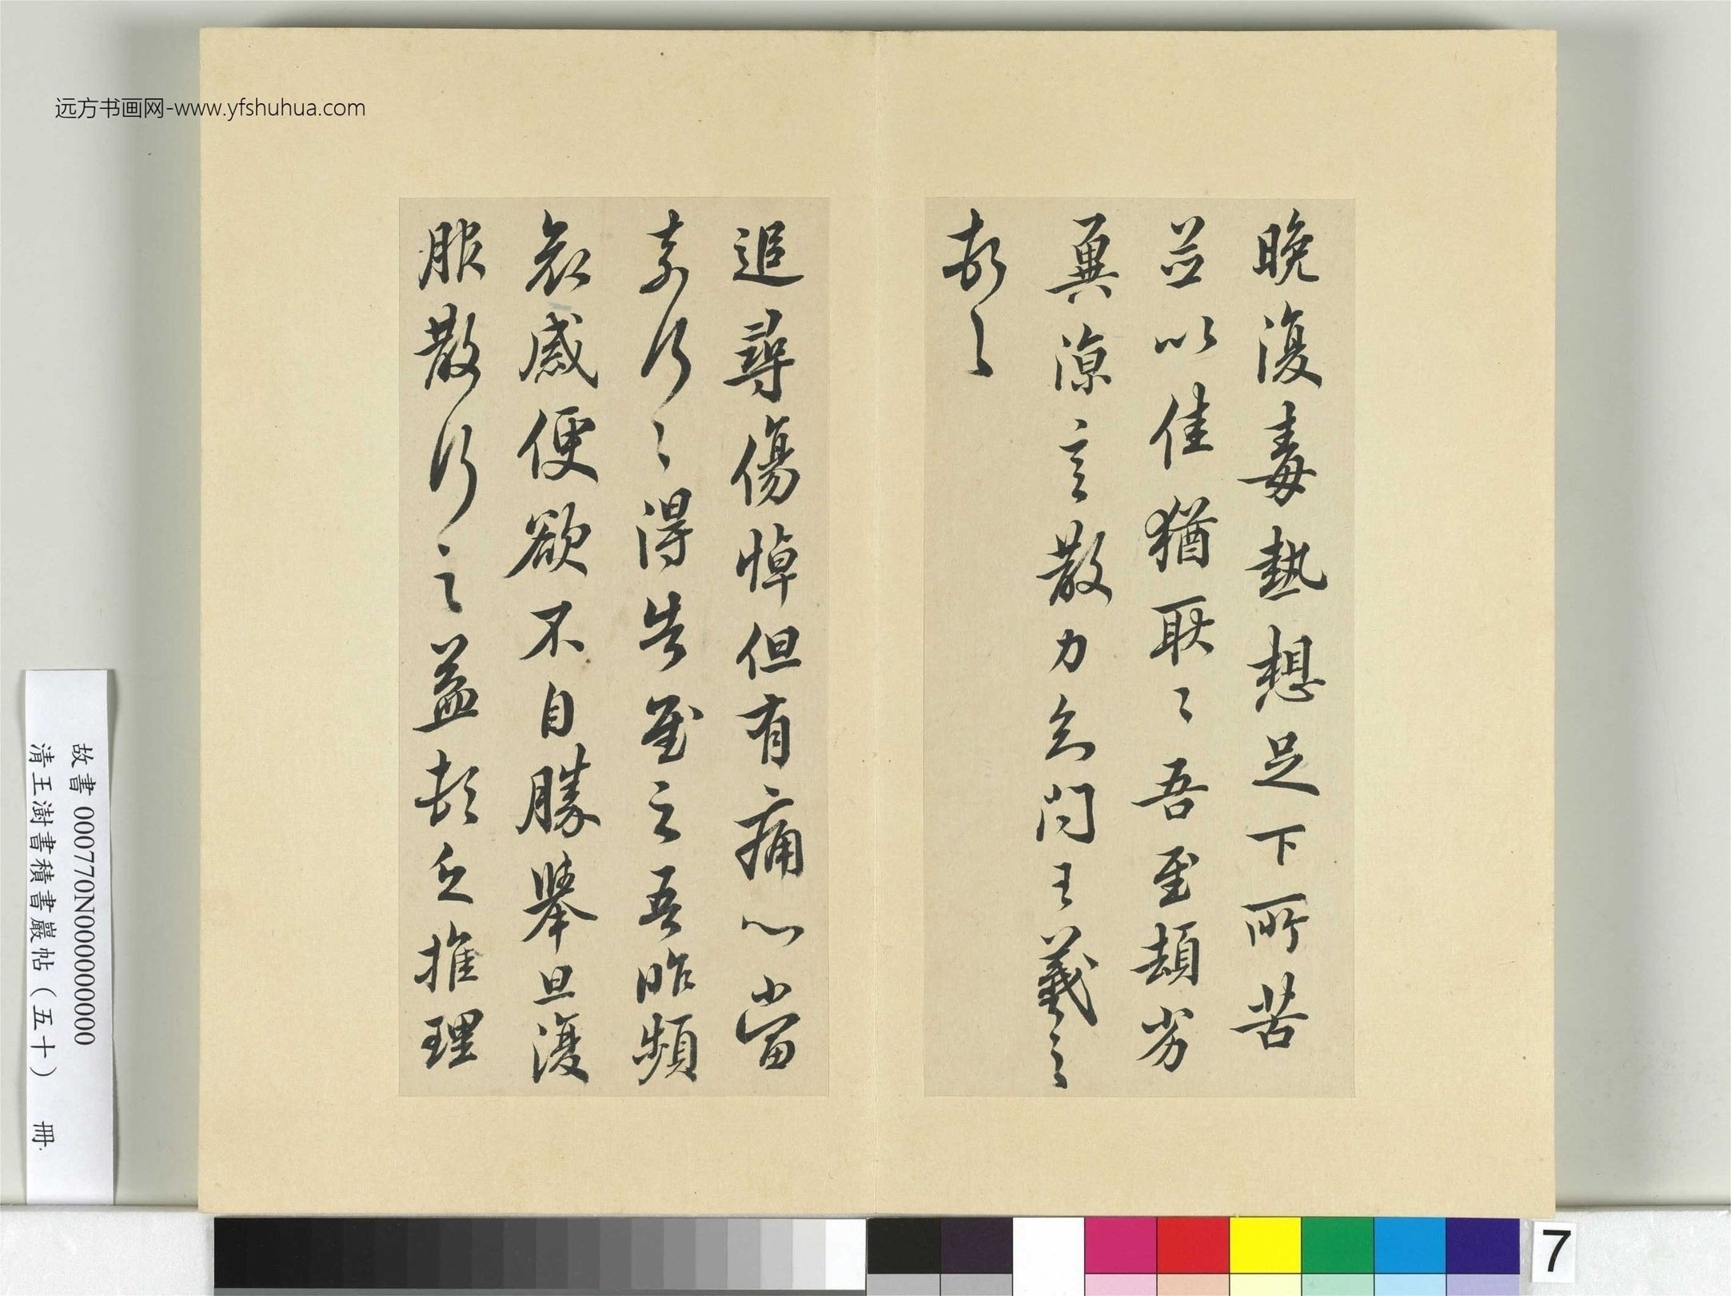 远方书画网-www.yfshuhua.com
晚復毒熱想足下所苦
並以佳猶耿〻吾至頓劣
冀涼言散力知問王羲之
追尋傷悼但有痛心當
奈何〻得告慰之吾昨頻
哀感便欲不自勝舉旦復
服散行之益頓乏推理
故書 000770N000000000
清王澍書積書巖帖（五十） 冊
7